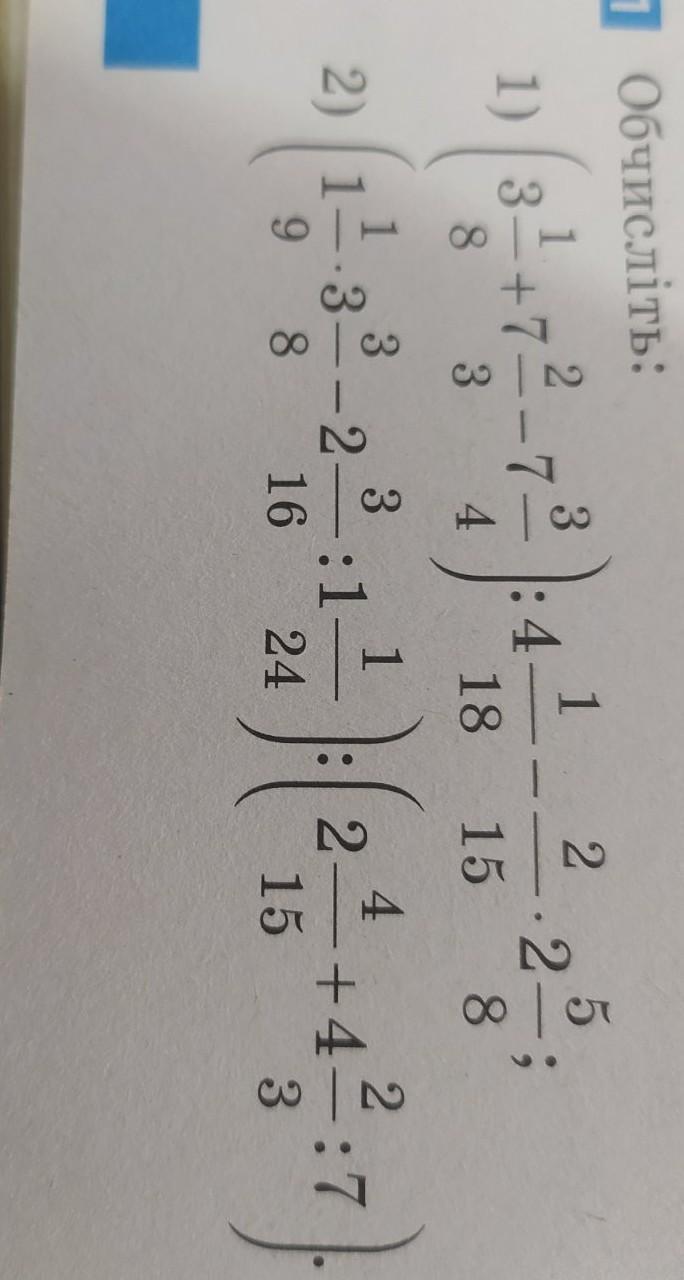 1 Обчисліть:
1) (3 1/8 + 7 2/3 − 7 3/4) : 4 1/18 − 2/15 · 2 5/8;
2) (1 1/9 · 3 3/8 − 2 3/16 : 1 1/24) : (2 4/15 + 4 2/3 : 7).